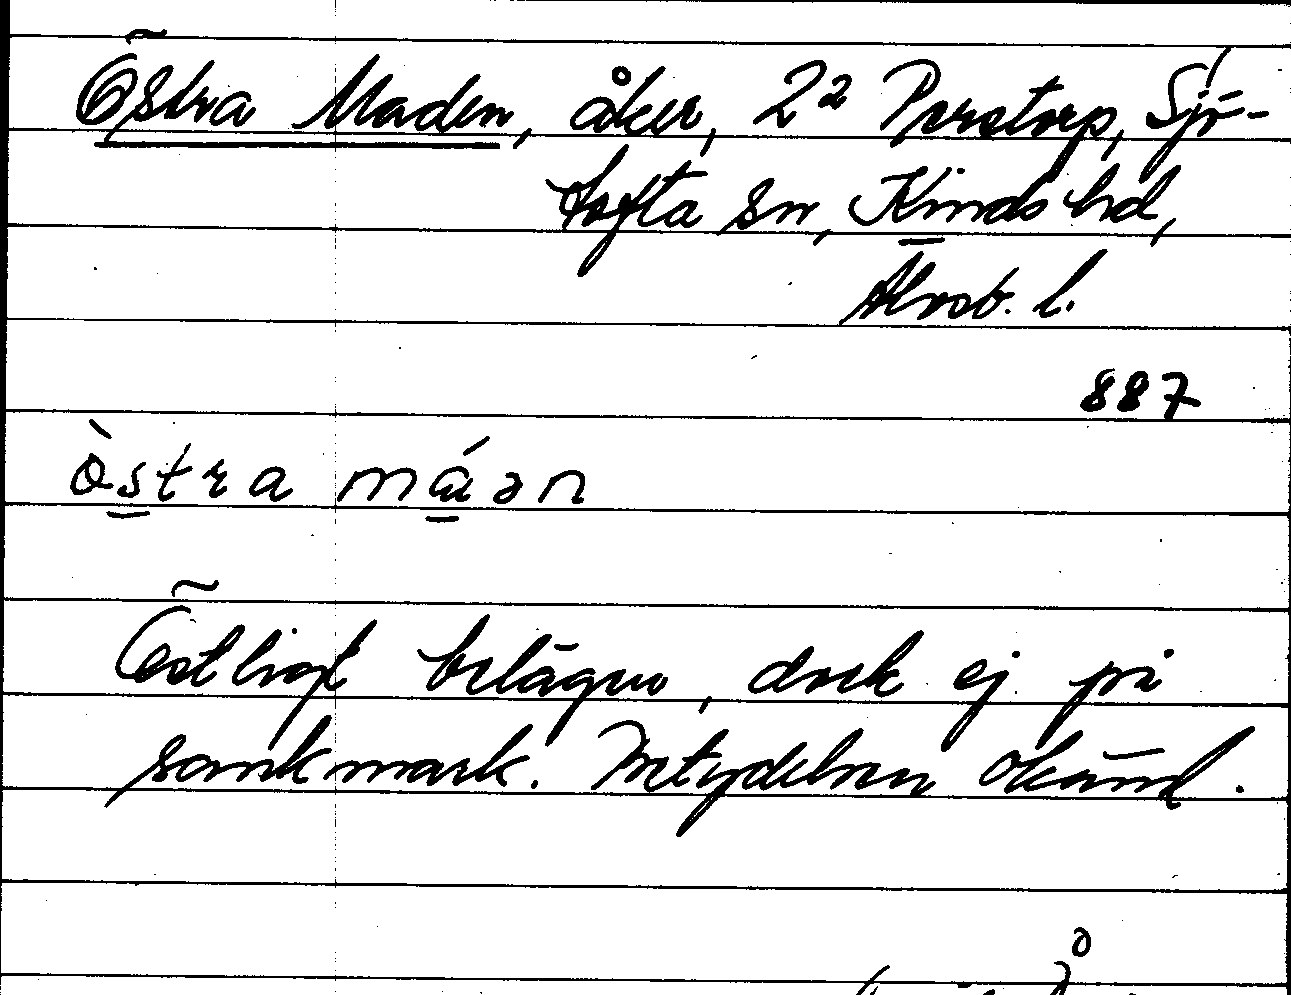 Östra Maden, åker, 2² Perstorp, Sjö-
tofta sn, Kinds hd,
Älvsb. l.
887
ò̀stra má̱ən
Östligt belägen, dock ej på
sankmark. Betydelsen okänd.